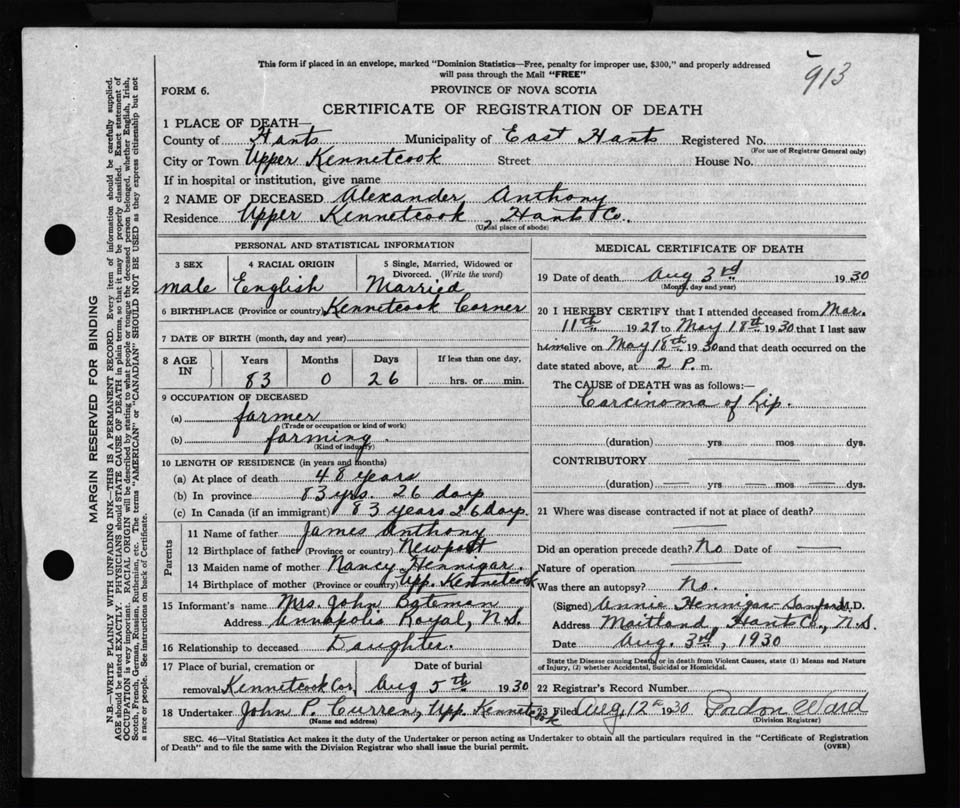 This form if placed in an envelope, marked "Dominion Statistics—Free, penalty for improper use, $300," and properly addressed
will pass through the Mail "FREE"
913
FORM 6.
PROVINCE OF NOVA SCOTIA
CERTIFICATE OF REGISTRATION OF DEATH
1 PLACE OF DEATH—
County of Hants Municipality of East Hants Registered No.
(For use of Registrar General only)
City or Town Upper Kennetcook Street House No.
If in hospital or institution, give name
2 NAME OF DECEASED Alexander Anthony
Residence Upper Kennetcook, Hants Co.
(Usual place of abode)
PERSONAL AND STATISTICAL INFORMATION
3 SEX 4 RACIAL ORIGIN 5 Single, Married, Widowed or
Divorced. (Write the word)
male English Married
6 BIRTHPLACE (Province or country) Kennetcook Corner
7 DATE OF BIRTH (month, day and year)
8 AGE IN Years Months Days If less than one day,
83 0 26 hrs. or min.
9 OCCUPATION OF DECEASED
(a) farmer
(Trade or occupation or kind of work)
(b) farming.
(Kind of industry)
10 LENGTH OF RESIDENCE (in years and months)
(a) At place of death 48 years
(b) In province 83 yrs. 26 days
(c) In Canada (if an immigrant) 83 years 26 days.
Parents
11 Name of father James Anthony
12 Birthplace of father (Province or country) Newport
13 Maiden name of mother Nancy Hennigar.
14 Birthplace of mother (Province or country) Upp. Kennetcook
15 Informant's name Mrs. John Bateman
Address Annapolis Royal, N.S.
16 Relationship to deceased Daughter.
17 Place of burial, cremation or Date of burial
removal Kennetcook Cor, Aug 5th 1930
18 Undertaker John P. Curren, Upp. Kennetcook
(Name and address)
MEDICAL CERTIFICATE OF DEATH
19 Date of death Aug 3rd 1930
(Month, day and year)
20 I HEREBY CERTIFY that I attended deceased from Mar.
11th 1929 to May 18th 1930 that I last saw
him alive on May 18th 1930 and that death occurred on the
date stated above, at 2 P. m.
The CAUSE OF DEATH was as follows:—
Carcinoma of Lip.
(duration) yrs mos dys.
CONTRIBUTORY
(duration) yrs mos dys.
21 Where was disease contracted if not at place of death?
Did an operation precede death? No Date of
Nature of operation
Was there an autopsy? No.
(Signed) Annie Hennigar Sanford M.D.
Address Maitland, Hants Co., N.S.
Date Aug. 3rd, 1930
State the Disease causing Death, or in death from Violent Causes, state (1) Means and Nature
of Injury, (2) whether Accidental, Suicidal or Homicidal.
22 Registrar's Record Number
23 Filed Aug, 12th 1930 Gordon Ward
(Division Registrar)
SEC. 46—Vital Statistics Act makes it duty of the Undertaker or person acting as Undertaker to obtain all the particulars required in the "Certificate of Registration
of Death" and to file the same with the Division Registrar who shall issue the burial permit.
(OVER)
MARGIN RESERVED FOR BINDING
N.B—WRITE PLAINLY WITH UNFADING INK—THIS IS A PERMANENT RECORD. Every item of information should be carefully supplied.
AGE should be stated EXACTLY. PHYSICIANS should STATE CAUSE OF DEATH in plain terms, so that it may be properly classified. Exact statement of
OCCUPATION is very important. RACIAL ORIGIN will be described by stating to what people or tongue the deceased person belonged, whether English, Irish,
Scotch, French, German, Russian, Ruthenian, etc. The terms "AMERICAN" or "CANADIAN" SHOULD NOT BE USED as they express citizenship but not
a race or people. See instructions on back of Certificate.